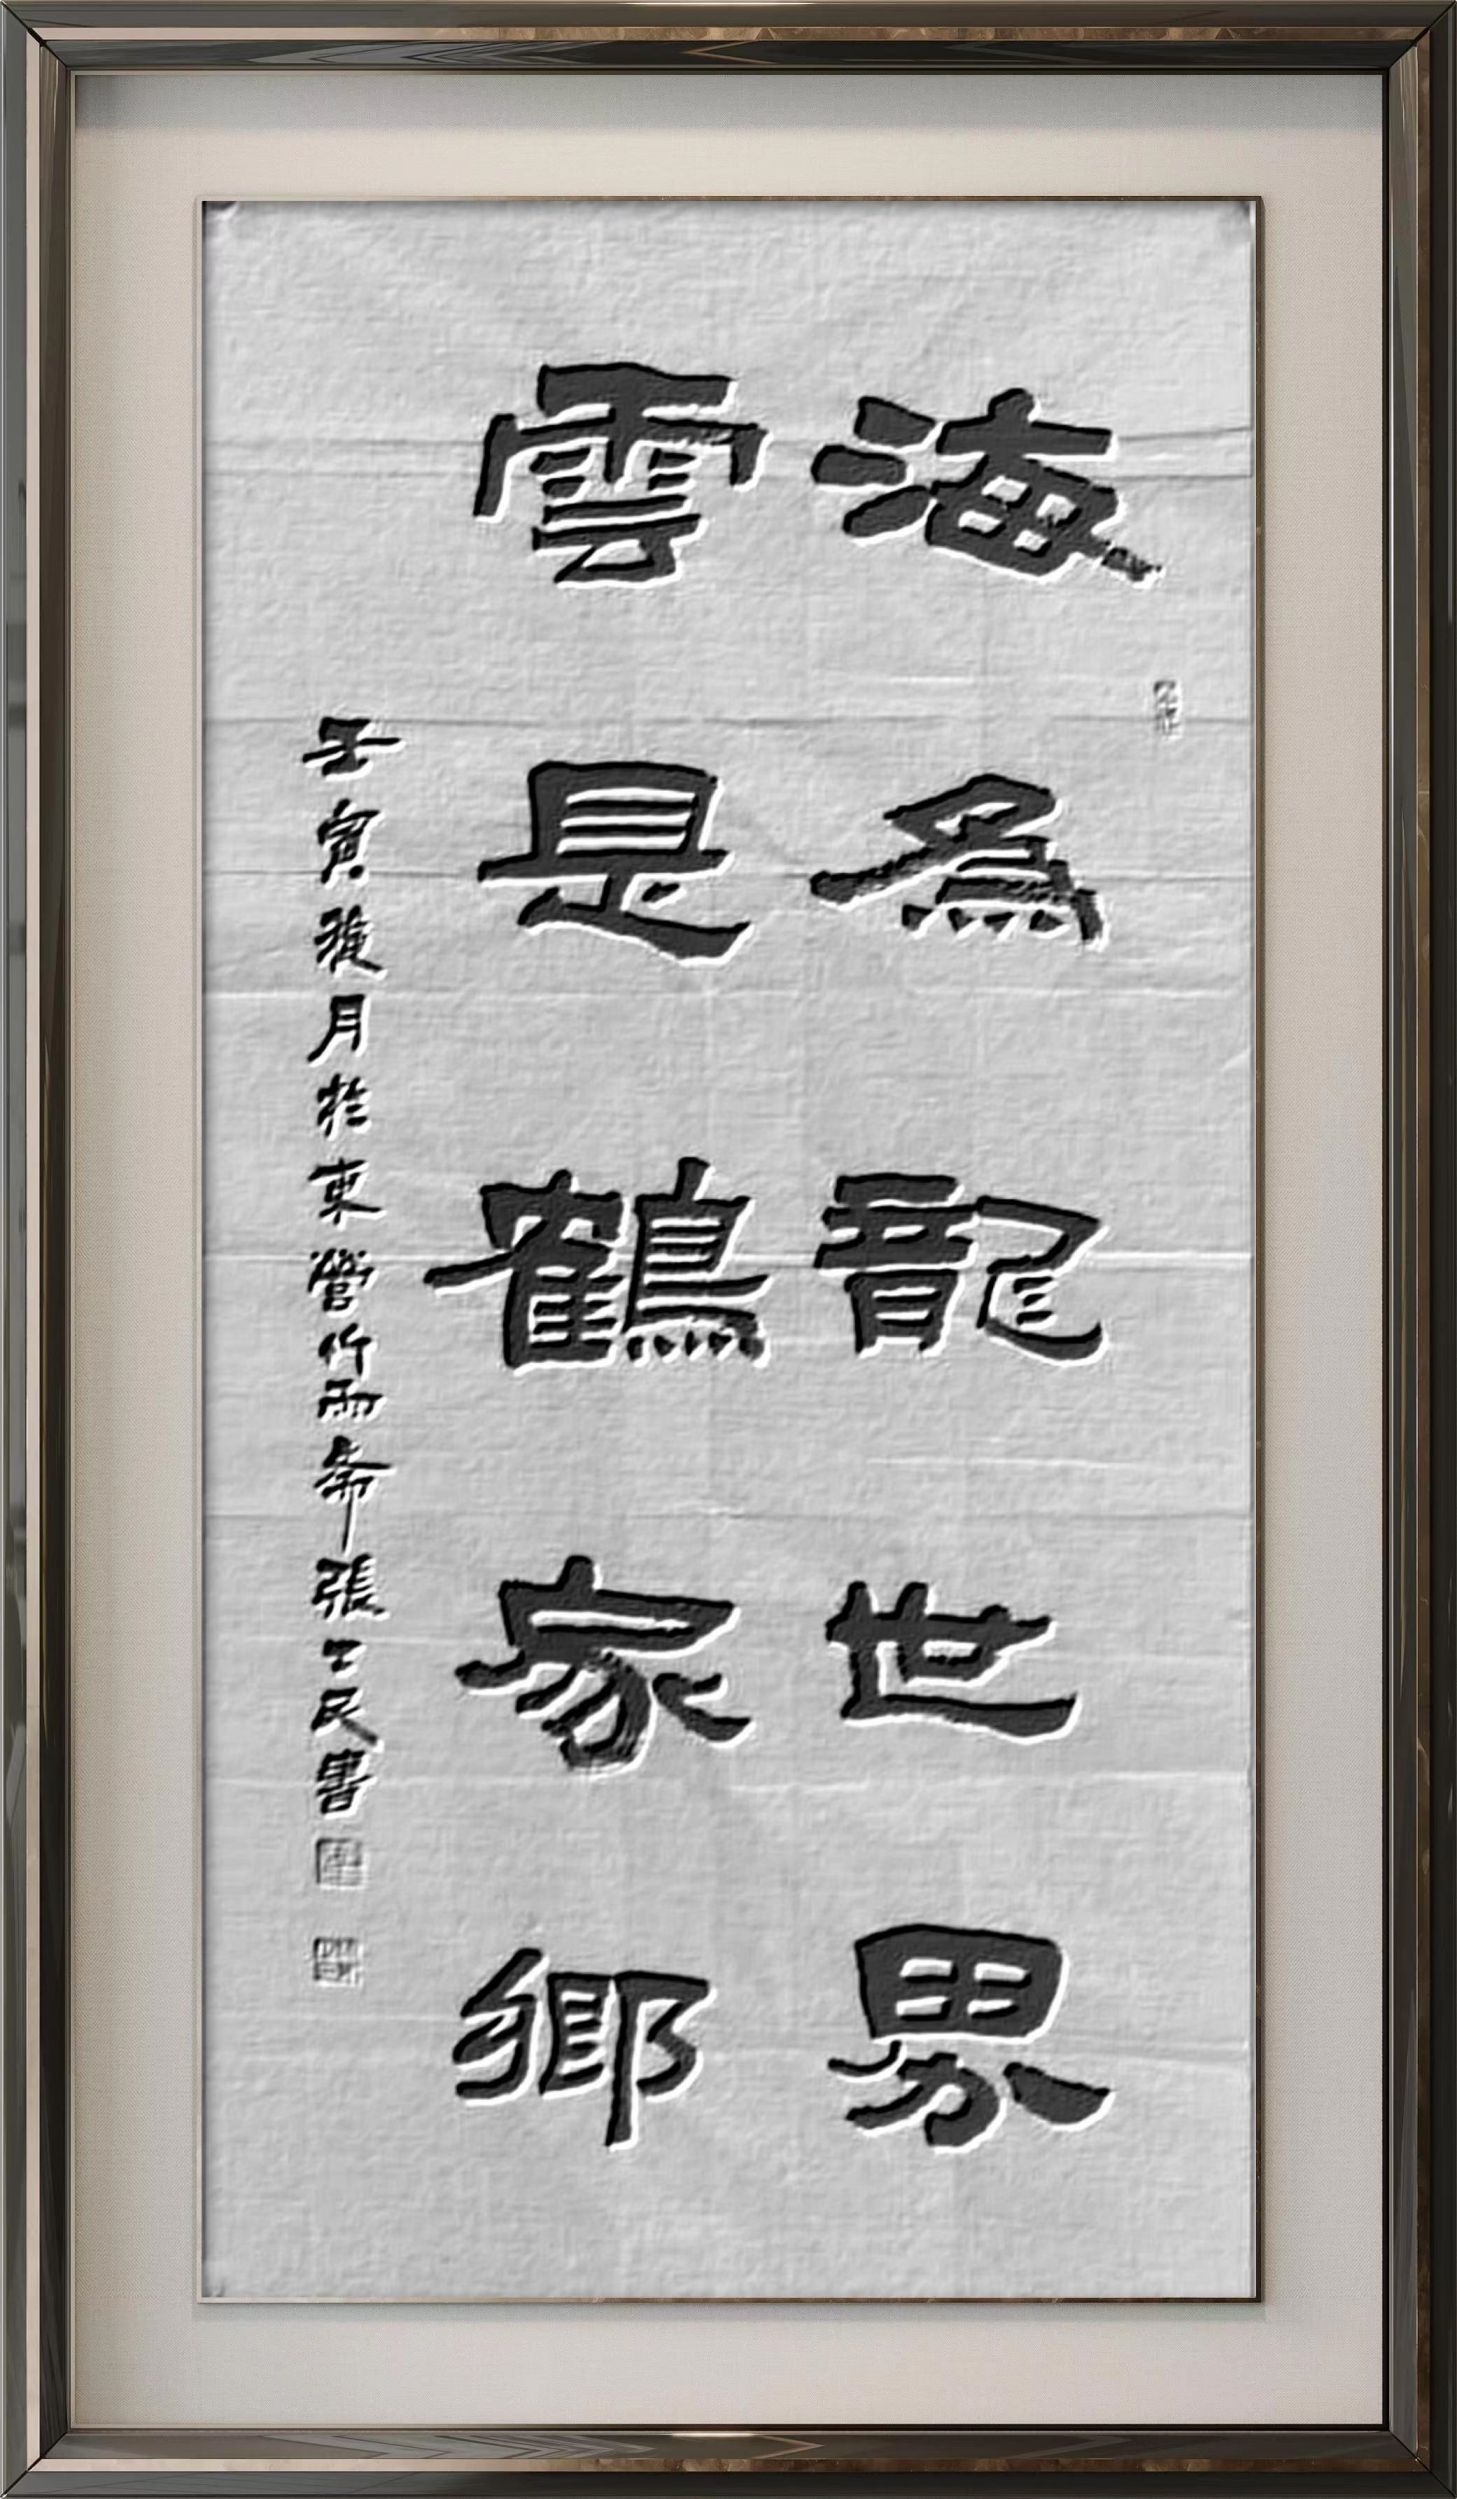 海為龍世界
雲是鶴家鄉
壬寅 月於東營竹雨斋張 民書